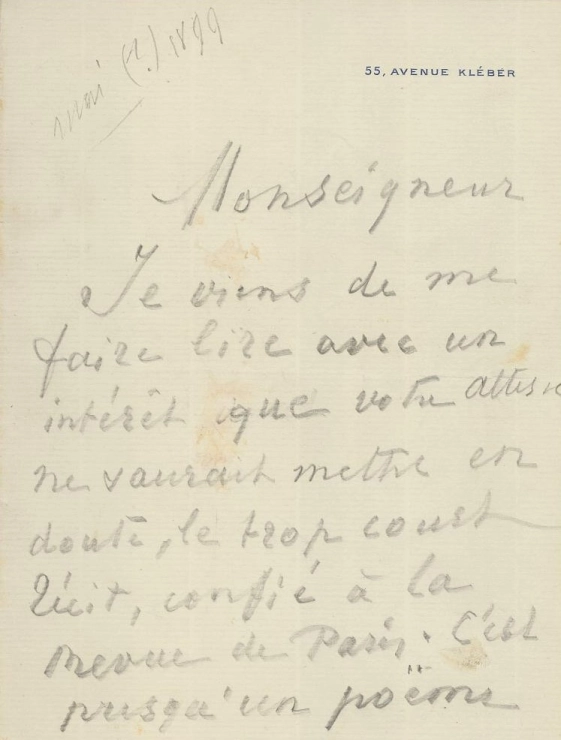 mai (?) 1899
55, AVENUE KLÉBER
Monseigneur
Je viens de me
faire lire avec un
intérêt que votre altesse
ne saurait mettre en
doute, le trop court
récit, confié à la
Revue de Paris. C'est
presqu'un poëme